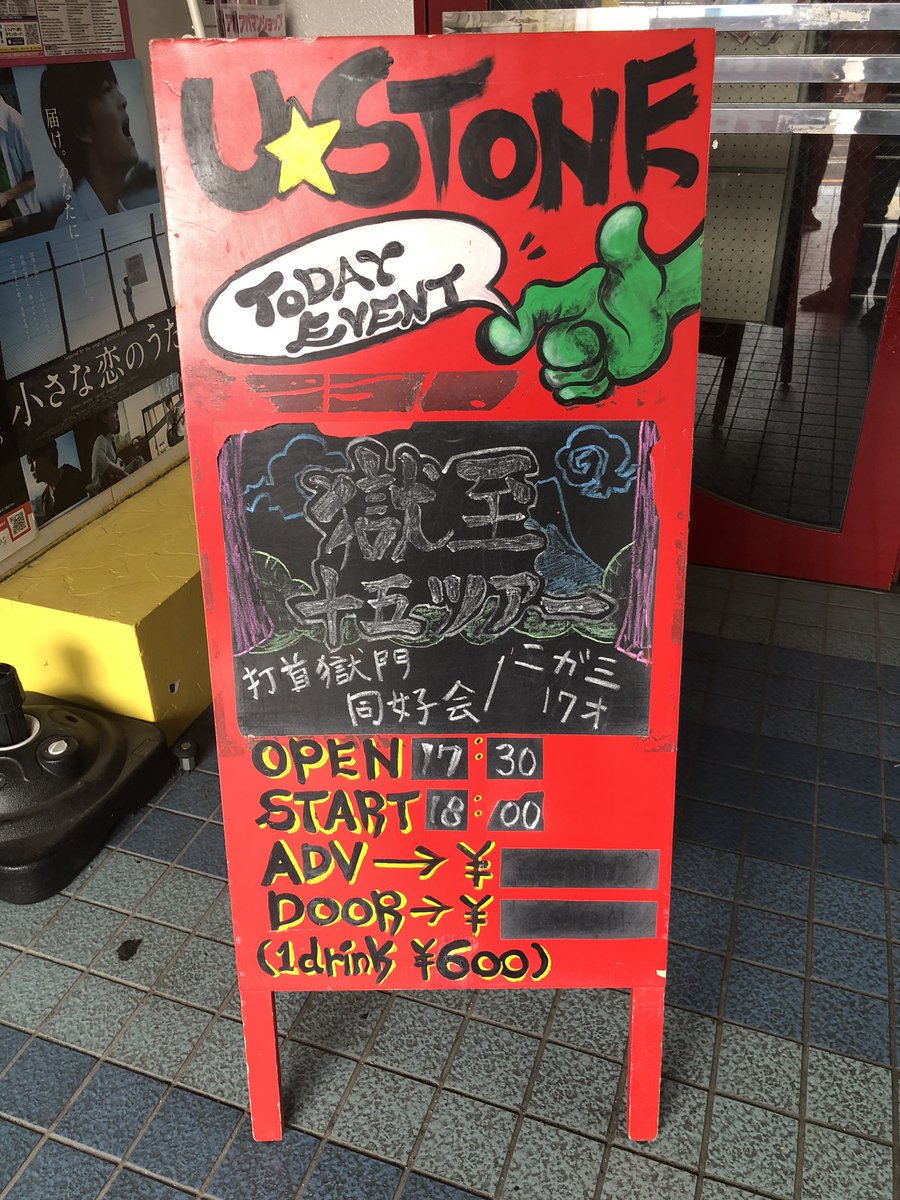 U★STONE
TODAY
EVENT
獄至
十五ツアー
打首獄門
同好会
/
ニガミ
17才
OPEN 17:30
START 18:00
ADV→¥
DOOR→¥
(1drink ¥600)
届け。あなたに
小さな恋のうた